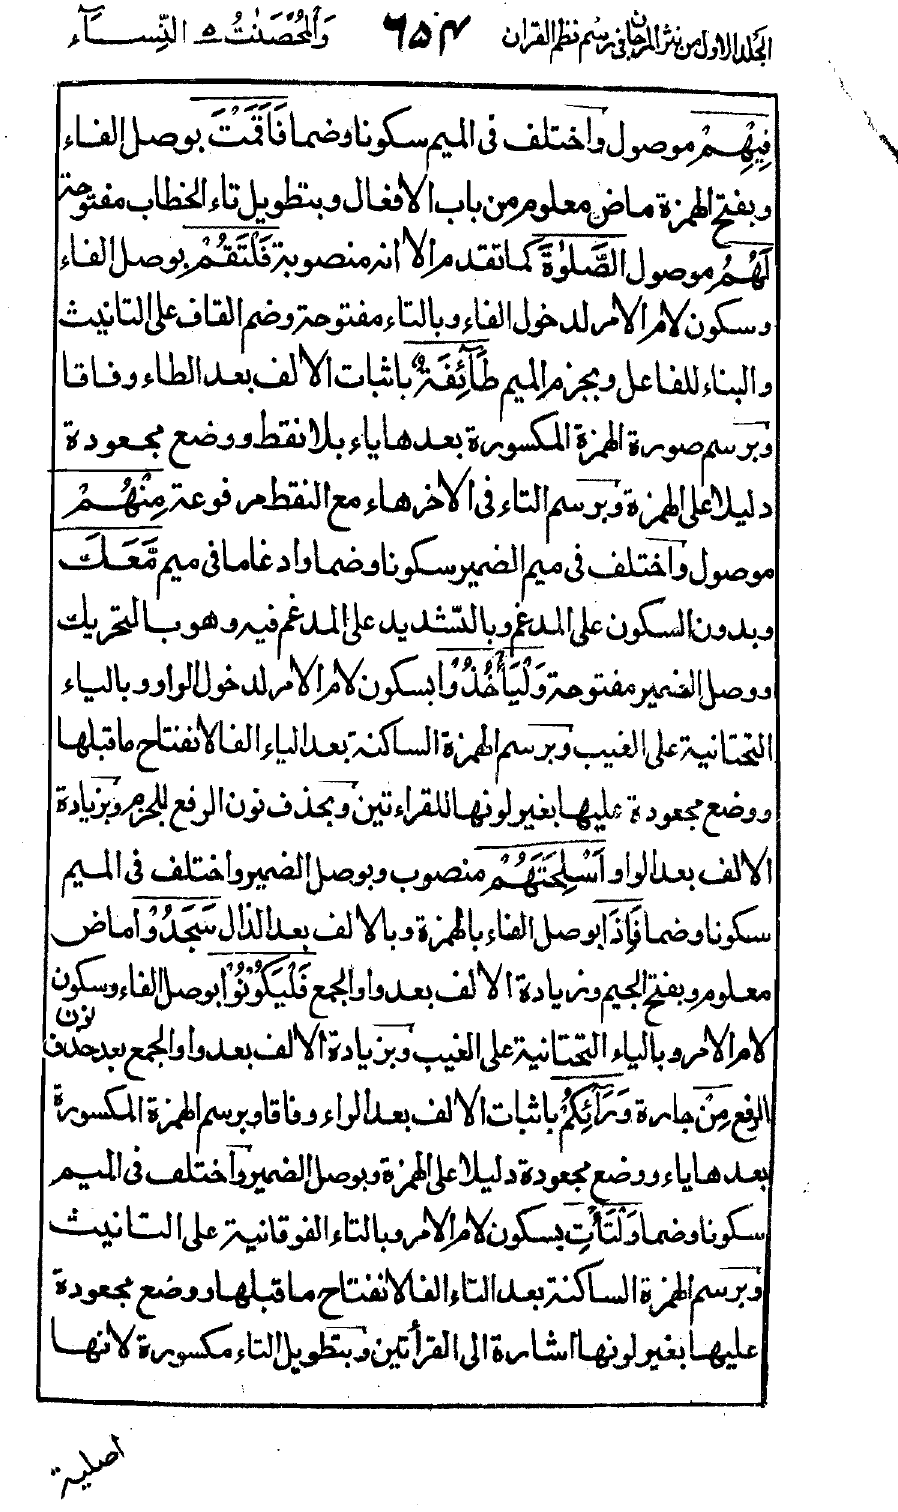 الجلد الاول من نثر المرجان في رسم نظم القران ٦٥٤ وَالْمُحْصَنٰتُ ٥ النِّسَآء
فِيْهِمْ موصول واختلف فى الميم سكونا وضما فَاَقَمْتَ بوصل الفاء
وبفتح الهمزة ماض معلوم من باب الافعال وبتطويل تاء الخطاب مفتوحة
لَهُمُ موصول الصَّلٰوةَ كما تقدم الا انه منصوبة فَلْتَقُمْ بوصل الفاء
وسكون لام الامر لدخول الفاء وبالتاء مفتوحة وضم القاف على التانيث
والبناء للفاعل وبجزم الميم طَآئِفَةٌ باثبات الالف بعد الطاء وفاقا
وبرسم صورة الهمزة المكسورة بعدها ياء بلا نقط ووضع مجعودة
دليلا على الهمزة وبرسم التاء فى الاخر هاء مع النقط مرفوعة مِنْهُمْ
موصول واختلف فى ميم الضمير سكونا وضما وادغاما فى ميم مَّعَكَ
وبدون السكون على المدغم وبالتشديد على المدغم فيه وهو بالتحريك
ووصل الضمير مفتوحة وَلْيَأْخُذُوْا بسكون لام الامر لدخول الواو وبالياء
التحتانية على الغيب وبرسم الهمزة الساكنة بعد الياء الفا لانفتاح ما قبلها
ووضع مجعودة عليها بغير لونها للقراءتين وبحذف نون الرفع للجزم وبزيادة
الالف بعد الواو اَسْلِحَتَهُمْ منصوب وبوصل الضمير واختلف فى الميم
سكونا وضما فَاِذَا بوصل الفاء بالهمزة وبالالف بعد الذال سَجَدُوْا ماض
معلوم وبفتح الجيم وزيادة الالف بعد واو الجمع فَلْيَكُوْنُوْا بوصل الفاء وسكون
لام الامر وبالياء التحتانية على الغيب وبزيادة الالف بعد واو الجمع بعد حذف نون
الرفع مِنْ جارة وَرَآئِكُمْ باثبات الالف بعد الراء وفاقا وبرسم الهمزة المكسورة
بعدها ياء ووضع مجعودة دليلا على الهمزة وبوصل الضمير واختلف فى الميم
سكونا وضما وَلْتَأْتِ بسكون لام الامر وبالتاء الفوقانية على التانيث
وبرسم الهمزة الساكنة بعد التاء الفا لانفتاح ما قبلها ووضع مجعودة
عليها بغير لونها اشارة الى القرأتين وبتطويل التاء مكسورة لانها
اصلية